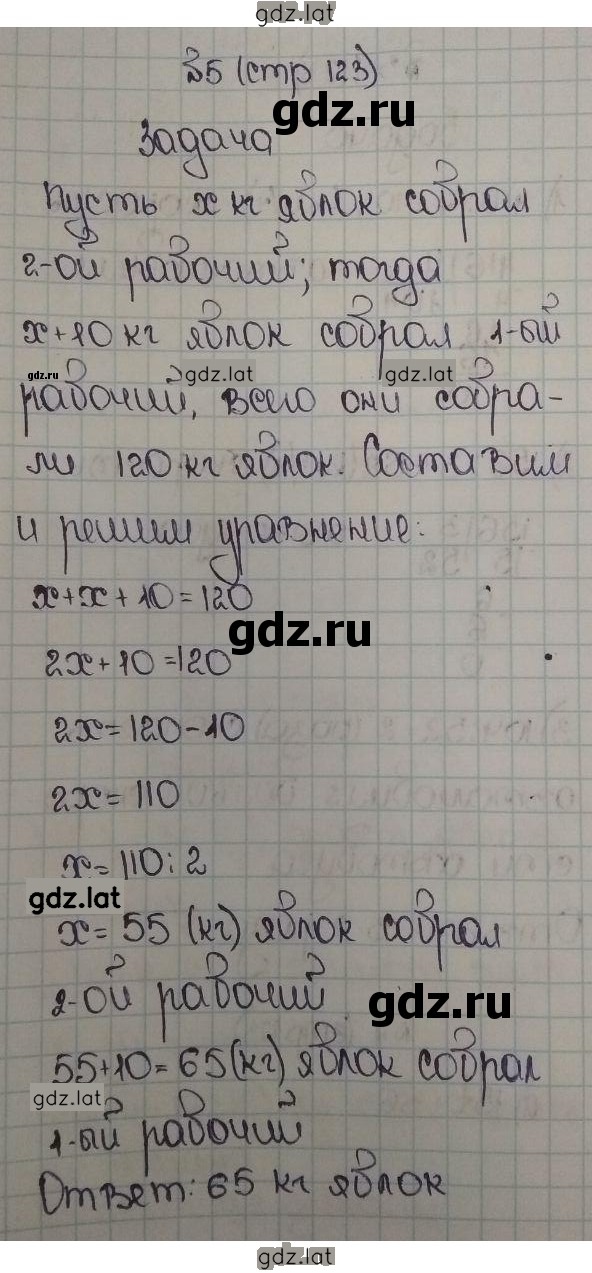 gdz.lat
№5 (стр 123)
gdz.ru
Задача
Пусть x кг яблок собрал
2-ой рабочий; тогда
x+10 кг яблок собрал 1-ый
gdz.ru gdz.lat gdz.lat
рабочий, всего они собра-
ли 120 кг яблок. Составим
и решим уравнение:
x+x+10=120
gdz.ru
2x+10=120
2x=120-10
2x=110
x=110:2
gdz.lat
x=55 (кг) яблок собрал
2-ой рабочий
gdz.ru
55+10=65(кг) яблок собрал
gdz.lat
1-ый рабочий
Ответ: 65 кг яблок
gdz.lat